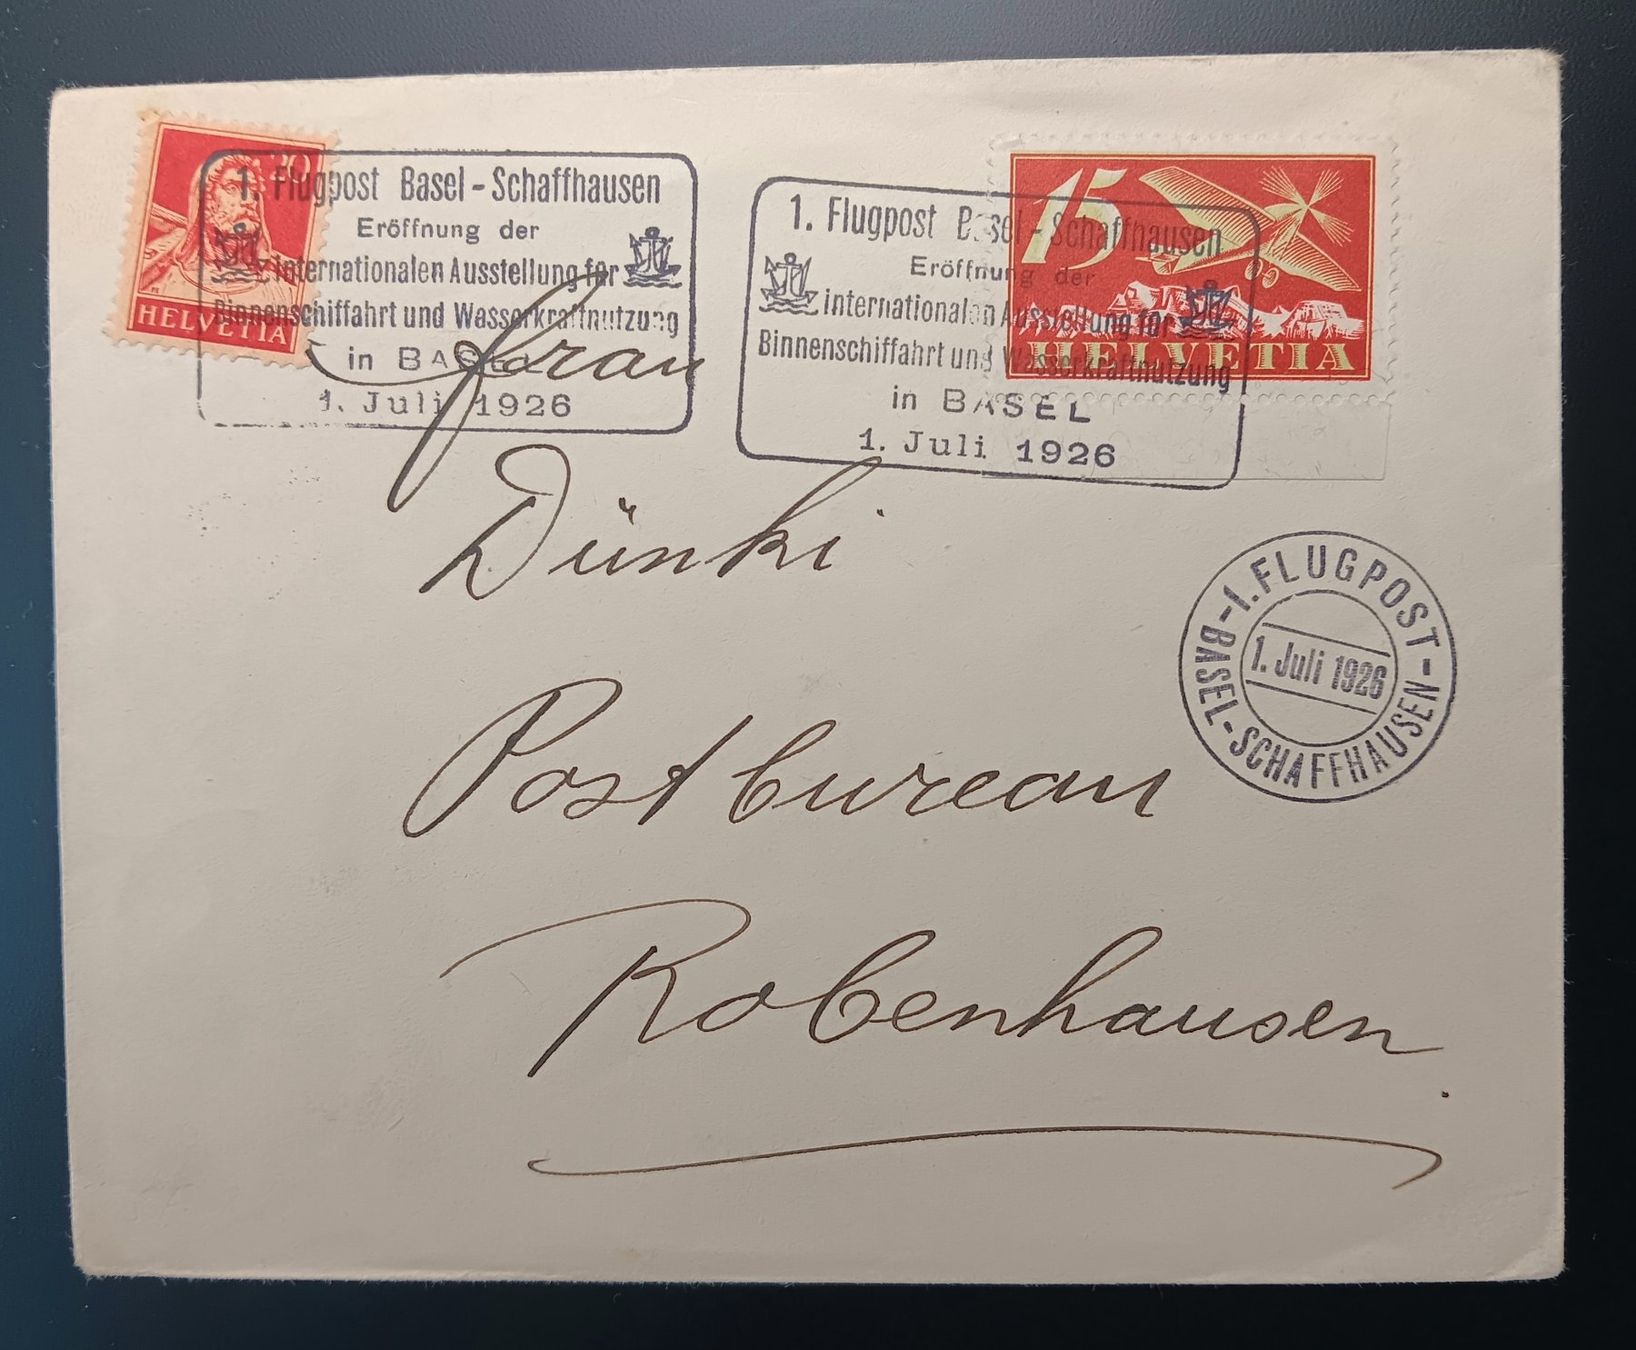 20
HELVETIA
1. Flugpost Basel - Schaffhausen
Eröffnung der
internationalen Ausstellung für
Binnenschiffahrt und Wasserkraftnutzung
in BASEL
1. Juli 1926
1. Flugpost Basel - Schaffhausen
Eröffnung der
internationalen Ausstellung für
Binnenschiffahrt und Wasserkraftnutzung
in BASEL
1. Juli 1926
15
HELVETIA
Frau
Dünki
Postbureau
Robenhausen.
1. FLUGPOST
- BASEL - SCHAFFHAUSEN -
1. Juli 1926